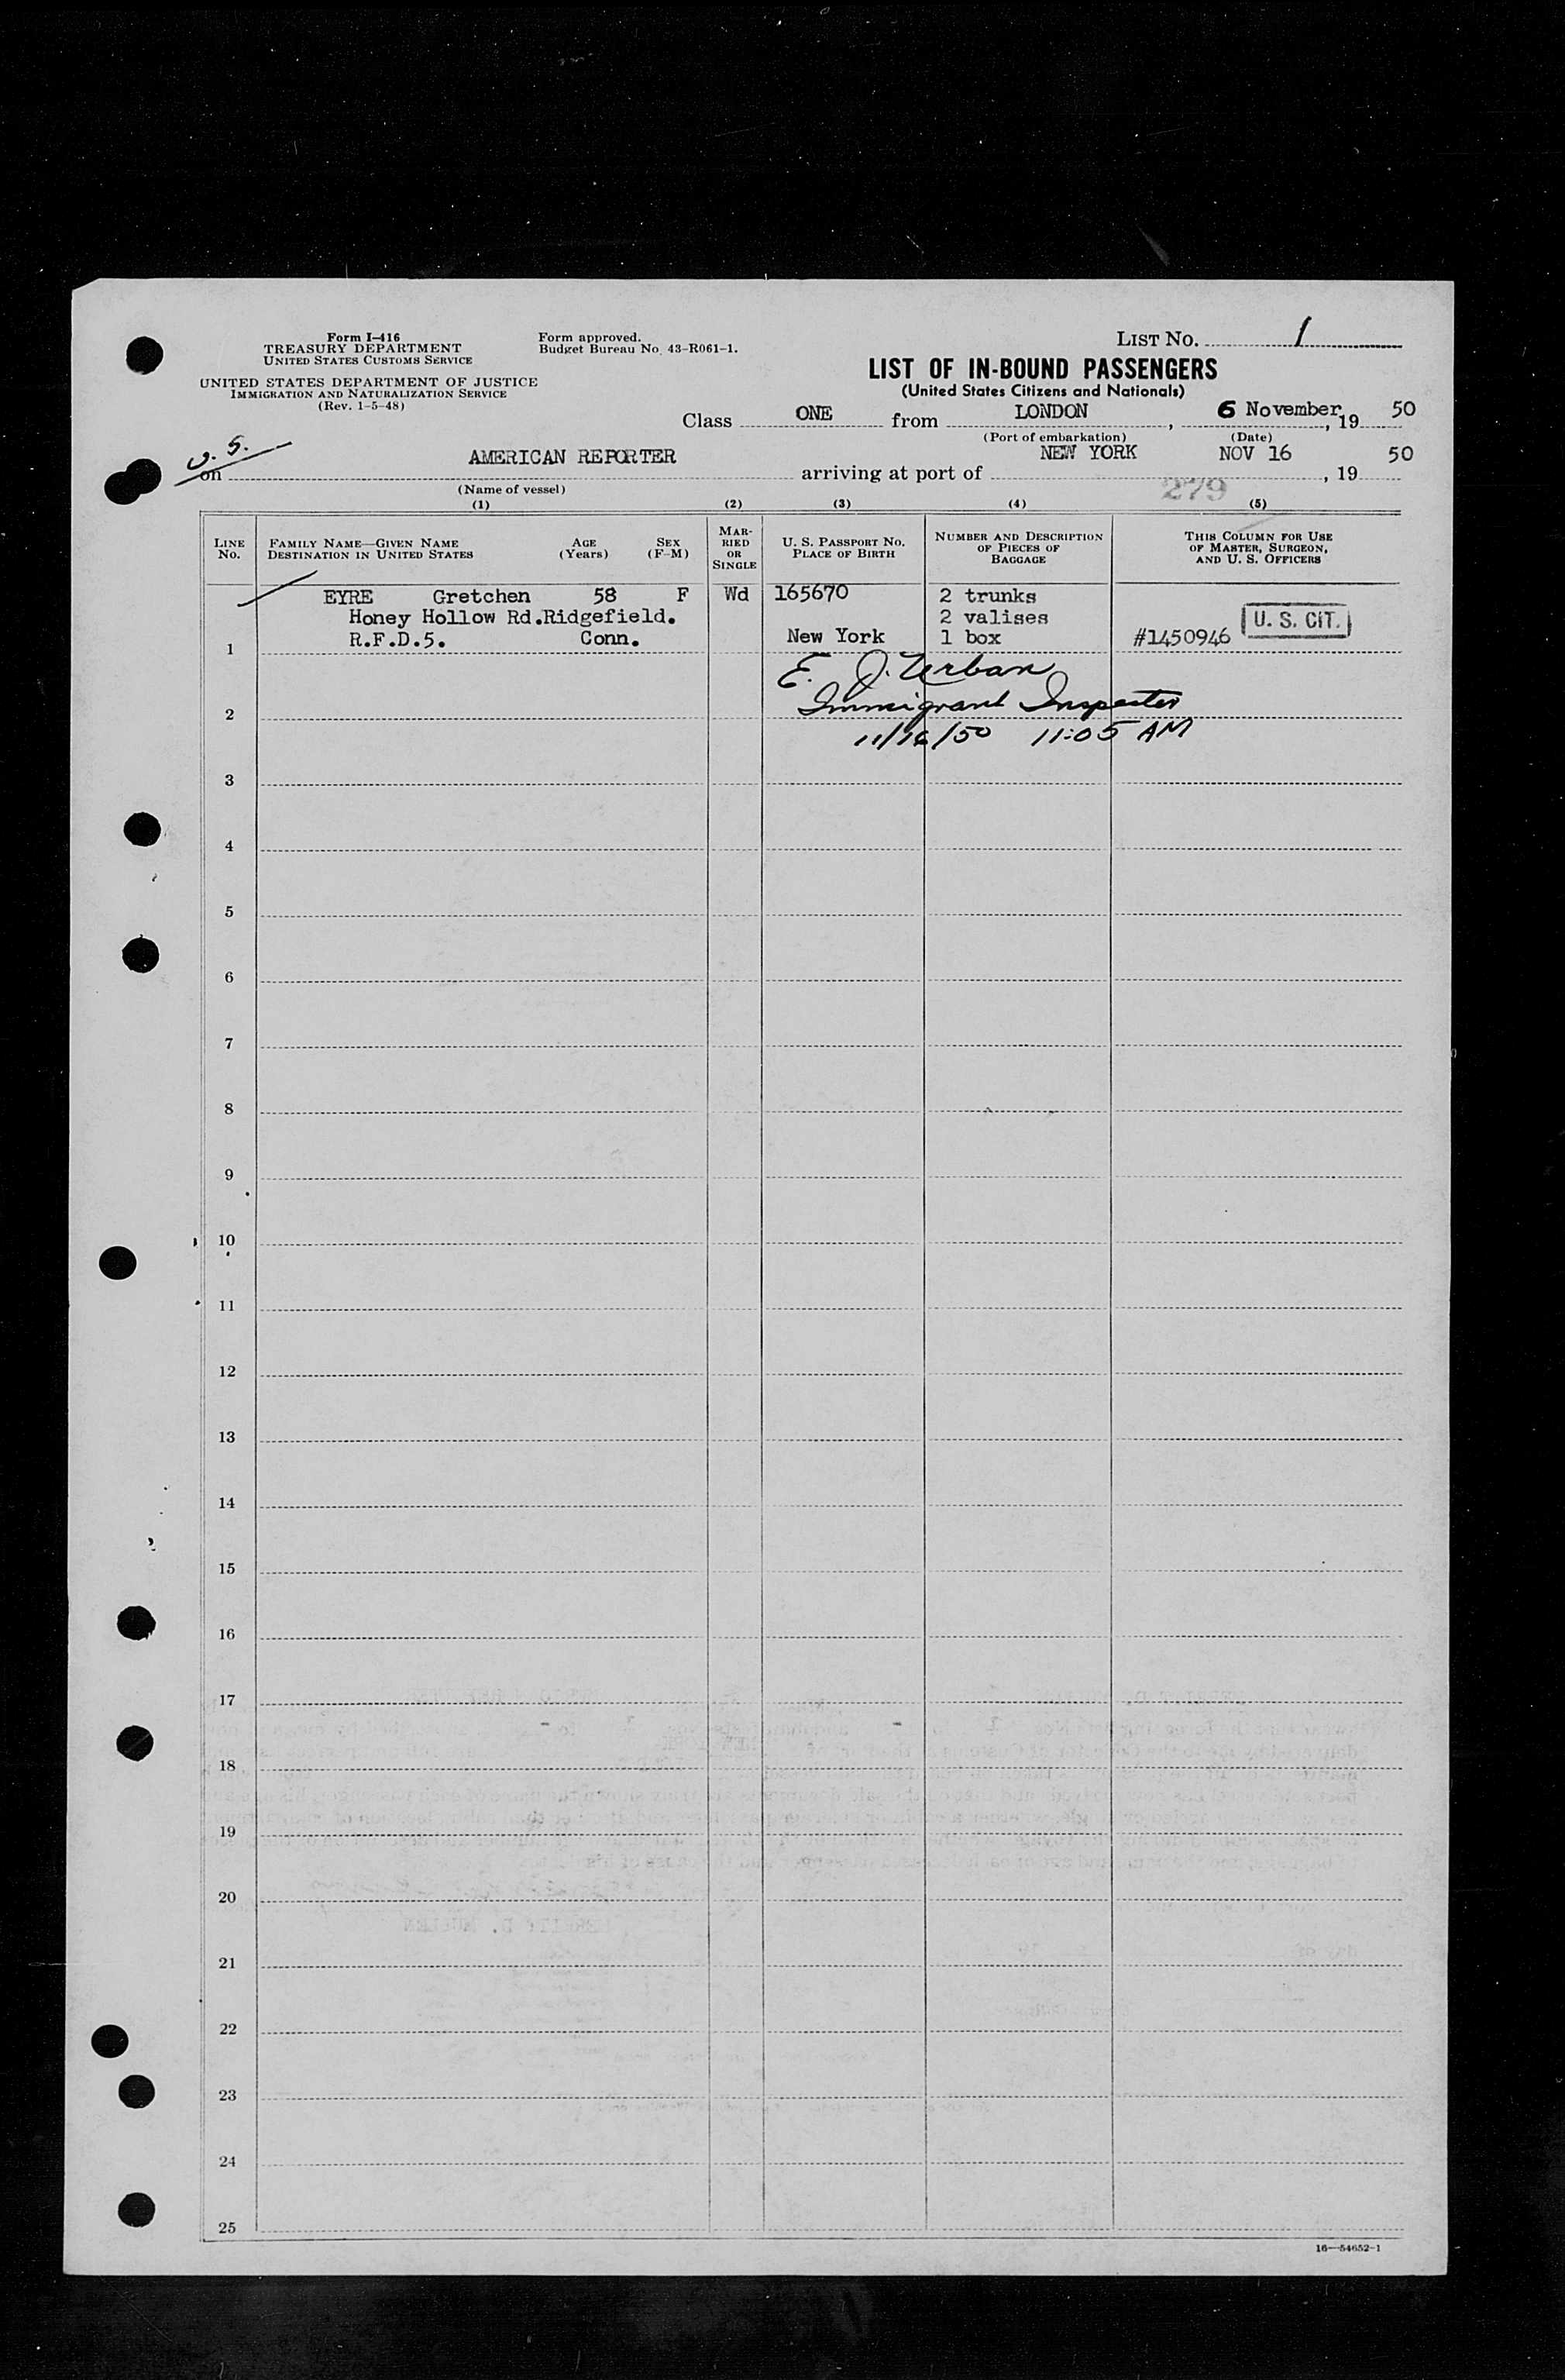 Form I-416
TREASURY DEPARTMENT
UNITED STATES CUSTOMS SERVICE
UNITED STATES DEPARTMENT OF JUSTICE
IMMIGRATION AND NATURALIZATION SERVICE
(Rev. 1-5-48)
Form approved.
Budget Bureau No. 43-R061-1.
LIST No. 1
LIST OF IN-BOUND PASSENGERS
(United States Citizens and Nationals)
Class ONE from LONDON, 6 November, 19 50
(Port of embarkation) (Date)
on AMERICAN REPORTER arriving at port of NEW YORK NOV 16, 19 50
(Name of vessel)
279
(1) (2) (3) (4) (5)
LINE No. FAMILY NAME—GIVEN NAME DESTINATION IN UNITED STATES AGE (Years) SEX (F-M) MARRIED OR SINGLE U. S. PASSPORT NO. PLACE OF BIRTH NUMBER AND DESCRIPTION OF PIECES OF BAGGAGE THIS COLUMN FOR USE OF MASTER, SURGEON, AND U. S. OFFICERS
EYRE Gretchen 58 F Wd 165670 2 trunks
Honey Hollow Rd.Ridgefield. 2 valises U. S. CIT.
1 R.F.D.5. Conn. New York 1 box #1450946
E. J. Urban
2 Immigrant Inspector
11/16/50 11:05 AM
3
4
5
6
7
8
9
10
11
12
13
14
15
16
17
18
19
20
21
22
23
24
25
16—54652-1